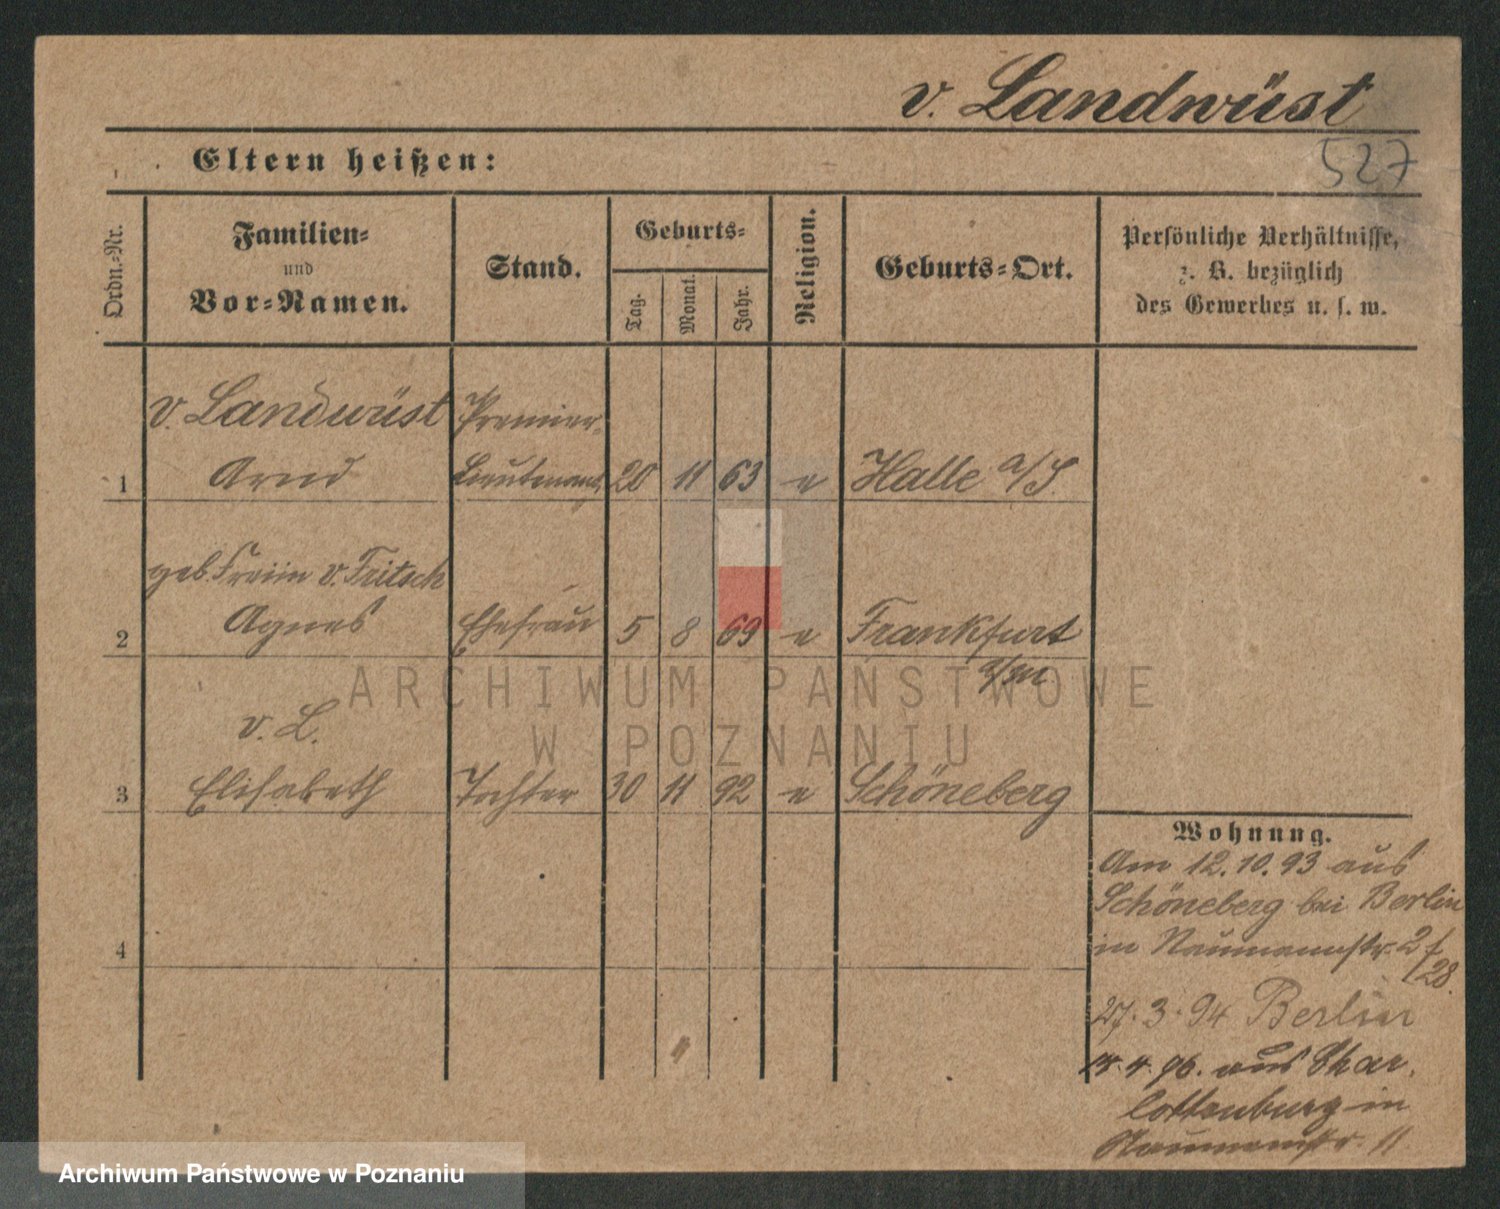 v. Landwüst
527
Eltern heißen:
Ordn.-Nr.
Familien-
und
Vor-Namen.
Stand.
Geburts-
Tag.
Monat.
Jahr.
Religion.
Geburts-Ort.
Persönliche Verhältnisse,
z. B. bezüglich
des Gewerbes u. s. w.
v. Landwüst Premier-
1 Arnd Lieutenant 20 11 63 e Halle a/S.
geb. Freiin v. Fritsch
2 Agnes Ehefrau 5 8 69 e Frankfurt
a/M
v. L.
3 Elisabeth Tochter 30 11 92 e Schöneberg
4
Wohnung.
Am 12.10.93 aus
Schöneberg bei Berlin
in Naumannstr. 2 f
/28.
27.3.94 Berlin
4.96. aus Char.
lottenburg in
Naumannstr. 11
ARCHIWUM PAŃSTWOWE
W POZNANIU
Archiwum Państwowe w Poznaniu